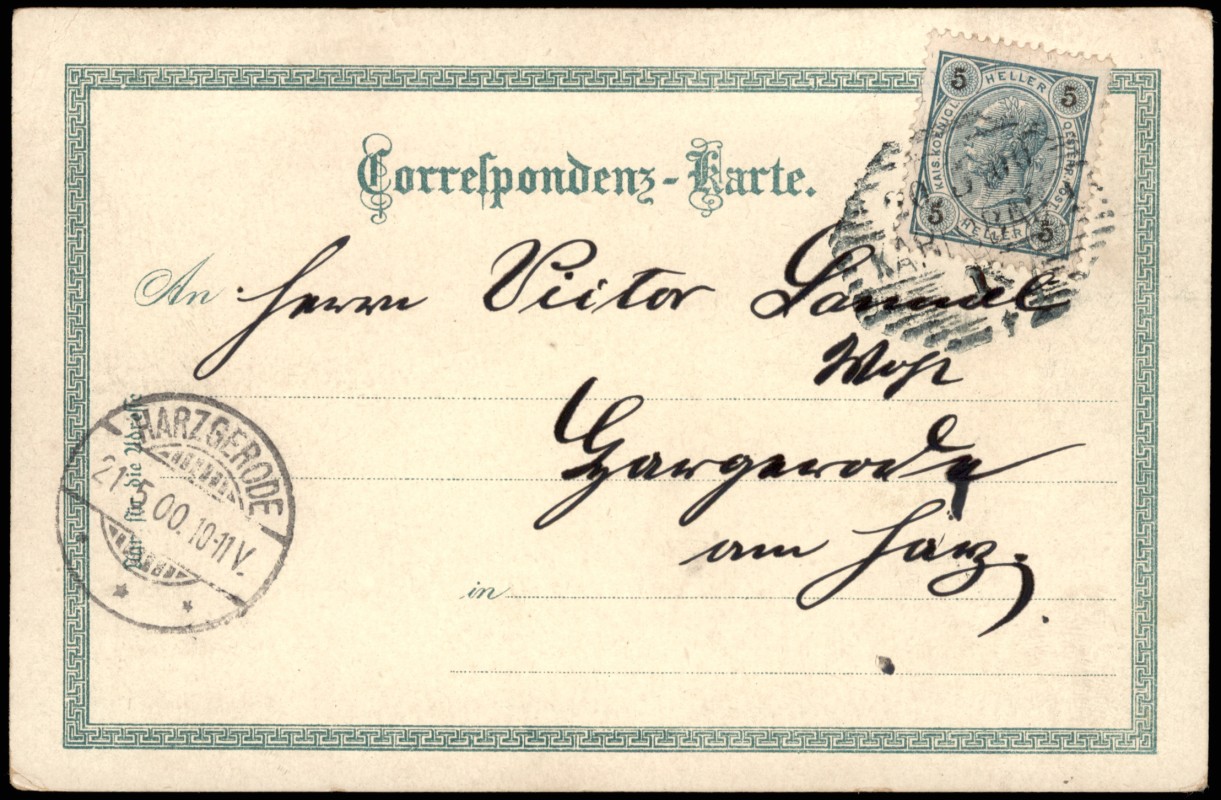 Correspondenz-Karte.
5 HELLER 5
KAIS. KOENIGL. OESTERR. POST
5 HELLER 5
An Herrn Victor Samuel
Wohl
Harzgerode
am Harz.
in
Nur für die Adresse
HARZGERODE
21 5 00. 10-11 V.